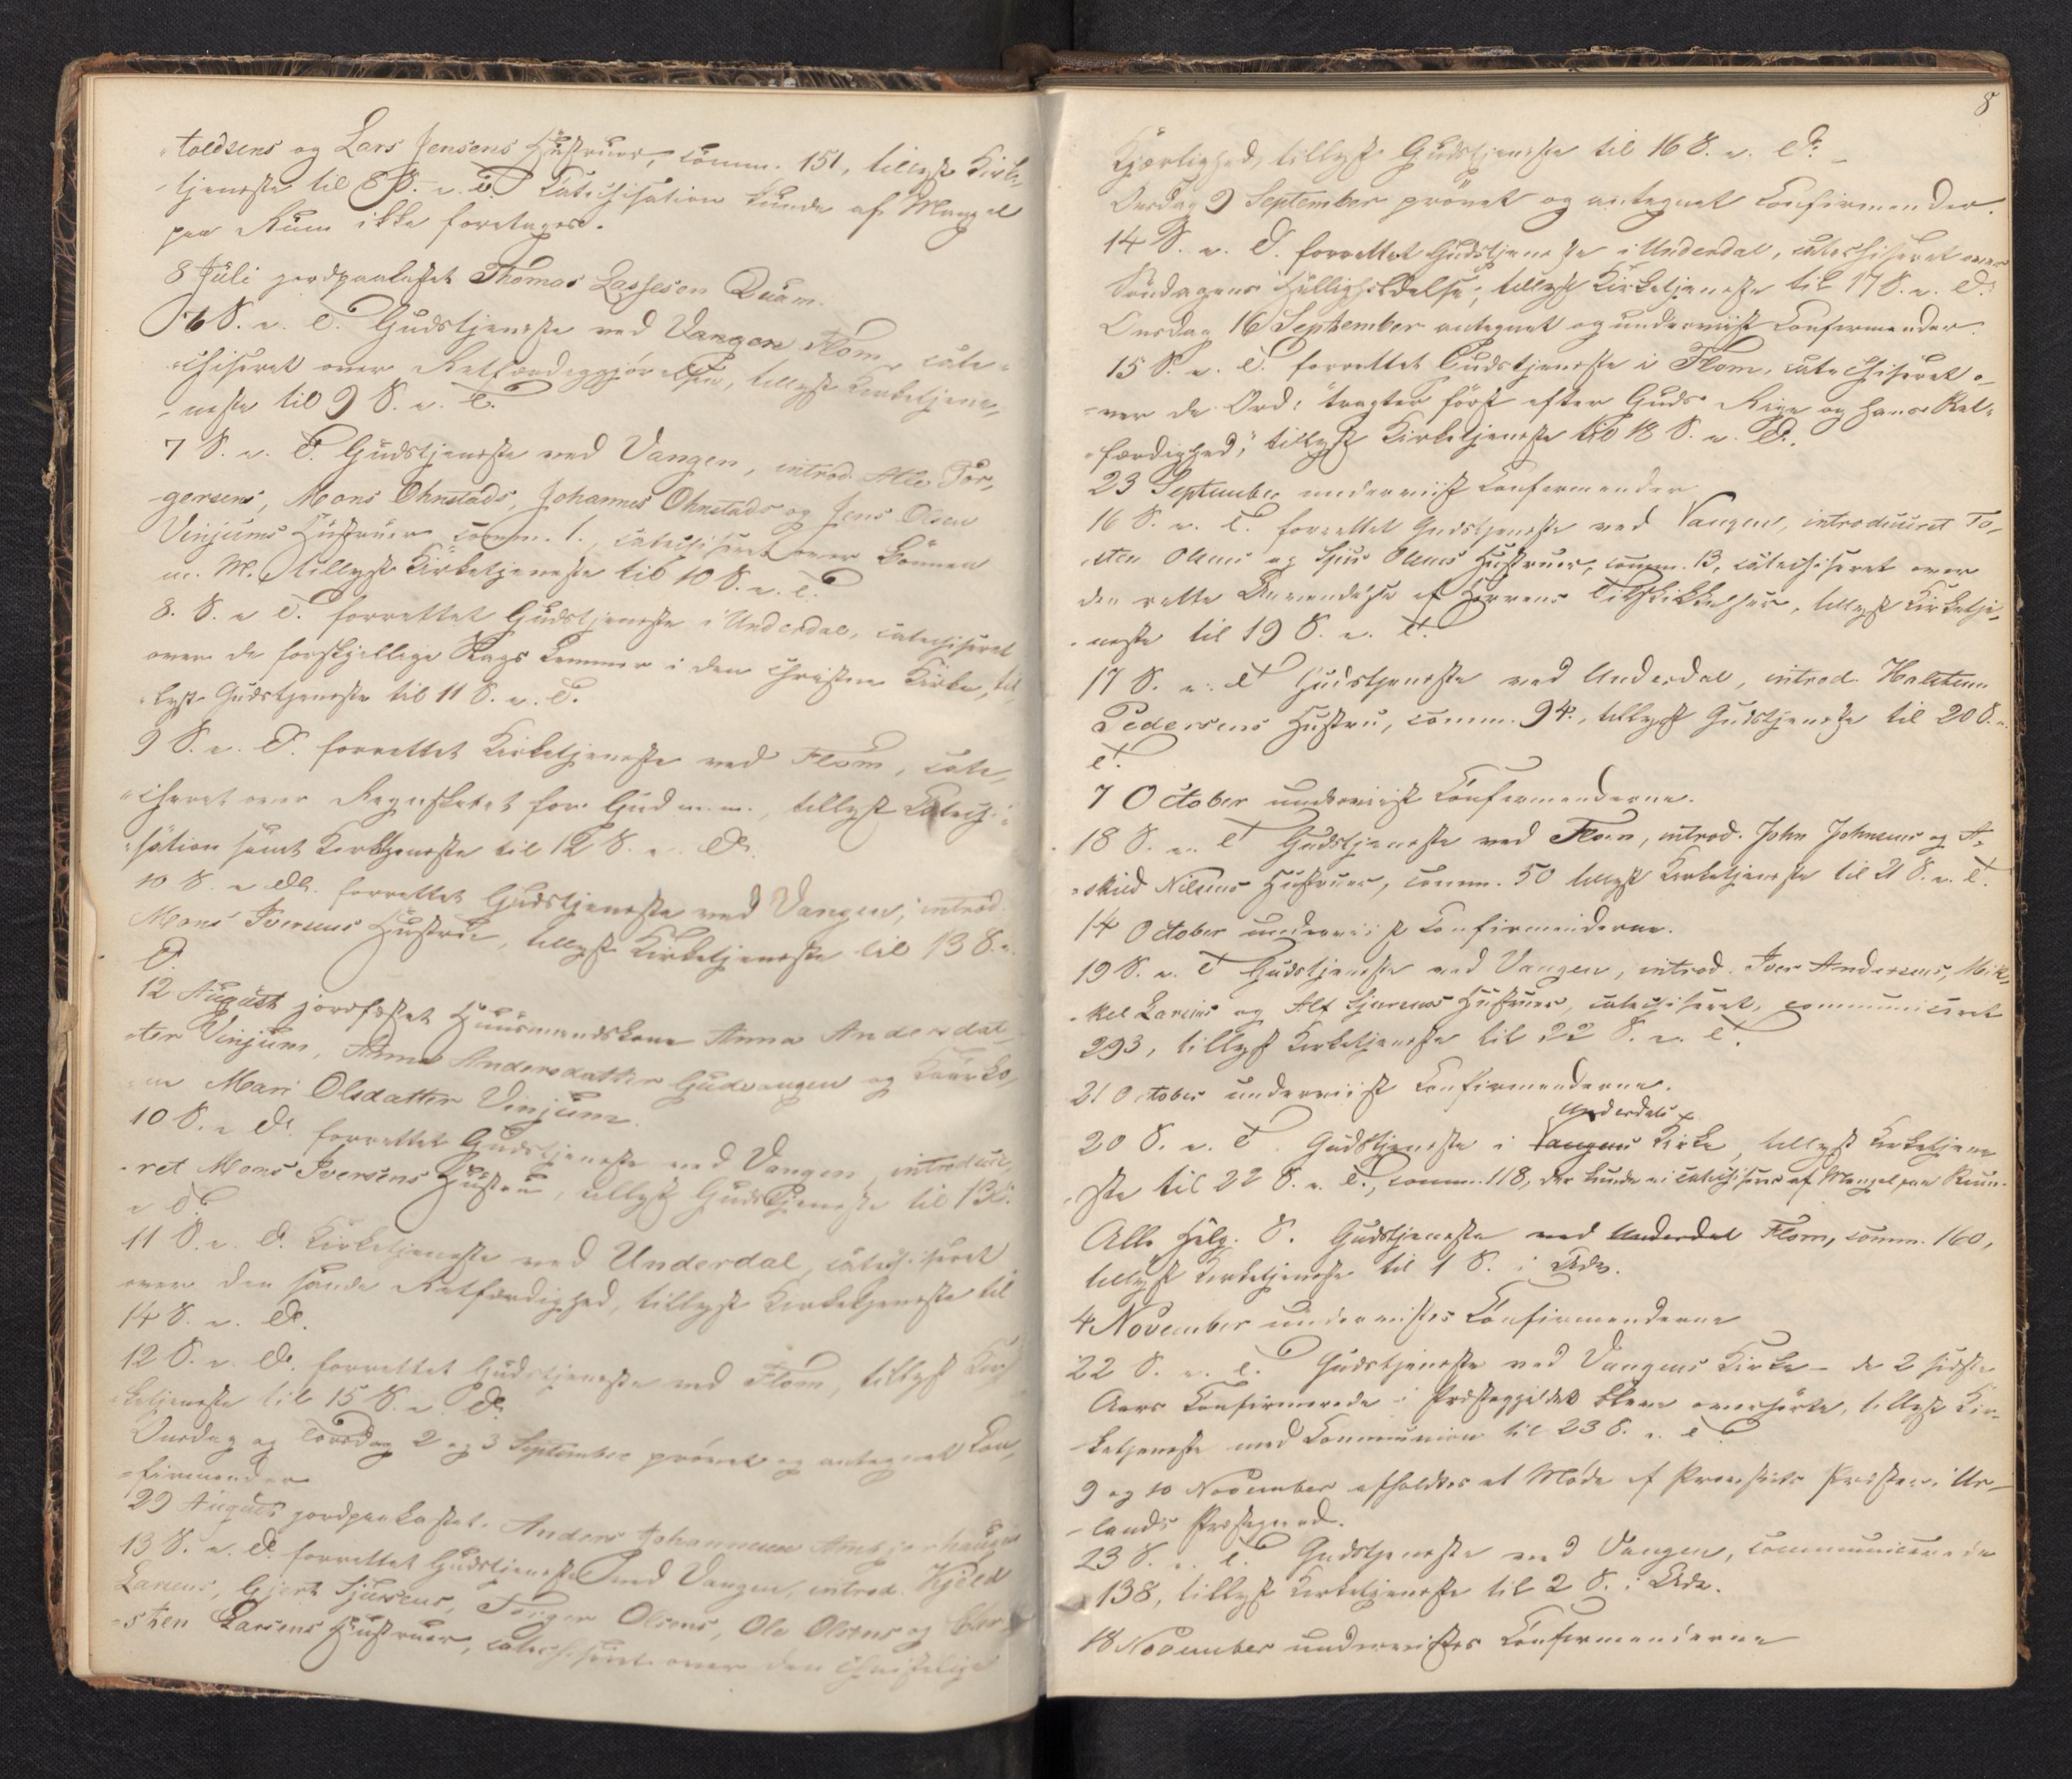 "toldsens og Lars Jensens Hustruer, comm. 151, tillyst Kirke-
-tjeneste til 8 S. e. T. Catechisation kunde af Mangel
paa Rum ikke foretages.
8 Juli jordpaakastet Thomas Lasseson Quam.
6 S. e. T. Gudstjeneste ved Vangen Flom, cate-
-chiseret over Retfærdiggjørelsen, tillyst Kirketjene-
-neste til 9 S. e. T.
7 S. e. T. Gudstjeneste ved Vangen, introd. Atle Tor-
-gersens, Mons Ohnstads, Johannes Ohnstads og Jens Olsen
Vinjums Hustruer comm. 1., catechiseret over Bönnen
m. M. tillyst Kirketjeneste til 10 S. e. T.
8. S. e T. forrettet Gudstjeneste i Underdal, catechiseret
over de forskjellige Slags Lemmer i den christne Kirke, til-
-lyst Gudstjeneste til 11 S. e. T.
9 S. e. T. forrettet Kirketjeneste ved Flom, cate-
-chiseret over Regnskabet for Gud m.m., tillyst Catechi-
-sation samt Kirketjeneste til 12 S. e. T.
10 S. e Tr. forrettet Gudstjeneste ved Vangen, introd.
Mons Iversens Hustru, tillyst Kirketjeneste til 13 S. e.
T.
12 August jordfæstet Huusmandskone Anna Andersdat-
-ter Vinjum, Anna Andersdatter Gudvangen og
Mari Olsdatter Vinjum.
10 S. e Tr. forrettet Gudstjeneste ved Vangen, introdu-
-ret Mons Iversens Hustru, tillyst Gudstjeneste til 13 S.
e T.
11 S. e. T. Kirketjeneste ved Underdal, catechiseret
over den sande Retfærdighed, tillyst Kirketjeneste til
14 S. e. Tr.
12 S. e. Tr. forrettet Gudstjeneste ved Flom, tillyst Kir-
-ketjeneste til 15 S. e Tr.
Onsdag og Torsdag 2 og 3 September prövet og antegnet Con-
-firmender
29 August jordpaakastet Anders Johannesen
13 S. e. T. forrettet Gudstjeneste ved Vangen, introd. Kjeld
Larsens, Gjert Sjursens, Torger Olsens, Ole Olsens og
-sten Larsens Hustruer, catechiseret over den christelige
8
Kjærlighed, tillyst Gudstjeneste til 16 S. e. Tr.
Onsdag 9 September prövet og antegnet Confirmender.
14 S. e. T. forrettet Gudstjeneste i Underdal, catechiseret over
Söndagens Helligholdelse, tillyst Kirketjeneste til 17 S. e. T.
Onsdag 16 September antegnet og underviist Confirmender.
15 S. e. T. forrettet Gudstjeneste i Flom, catechiseret o-
-ver de Ord: "tragter först efter Guds Rige og hans Ret-
-færdighed," tillyst Kirketjeneste til 18 S. e. Tr.
23 September underviist Confirmender
16 S. e. T. forrettet Gudstjeneste ved Vangen, introduceret To-
-sten Olsens og Sjur Olsens Hustruer, comm. 13, catechiseret over
den rette Anvendelse af Herrens Tilskikkelser, tillyst Kirketje-
-neste til 19 S. e. T.
17 S. e. T Gudstjeneste ved Underdal, introd. Halsten
Pedersens Hustru, comm. 94., tillyst Gudstjeneste til 20 S. e.
T.
7 October underviist Confirmenderne.
18 S. e. T Gudstjeneste ved Flom, introd. John Johnsens og A-
-skild Nilsens Hustruer, comm. 50 tillyst Kirketjeneste til 21 S. e. T.
14 October underviist Confirmenderne.
19 S. e. T Gudstjeneste ved Vangen, introd. Iver Andersens, Mik-
-kel Larsens og Alf Sjursens Hustruer, catechiseret, communiceret
293, tillyst Kirketjeneste til 22 S. e. T.
21 October underviist Confirmenderne.
Underdals
20 S. e. T. Gudstjeneste i Vangens Kirke, tillyst Kirketjene
-ste til 22 S. e. T., comm. 118, der kunde ei catechiseres af Mangel paa Rum.
Alle Helg. S. Gudstjeneste ved Underdal Flom, comm. 160,
tillyst Kirketjeneste til 1 S. i Adv.
4 November undervistes Confirmenderne
22 S. e. T. Gudstjeneste ved Vangens Kirke - de 2 sidste
Aars Confirmerede i Præstegjeldet bleve overhörte, tillyst Kir-
-ketjeneste med Communion til 23 S. e. T
9 og 10 November afholdtes et Möde af Provstiets Præster i Ur-
-lands Præstegaard.
23 S. e. T. Gudstjeneste ved Vangen, communicerede
138, tillyst Kirketjeneste til 2 S. i Adv.
18 November undervistes Confirmenderne